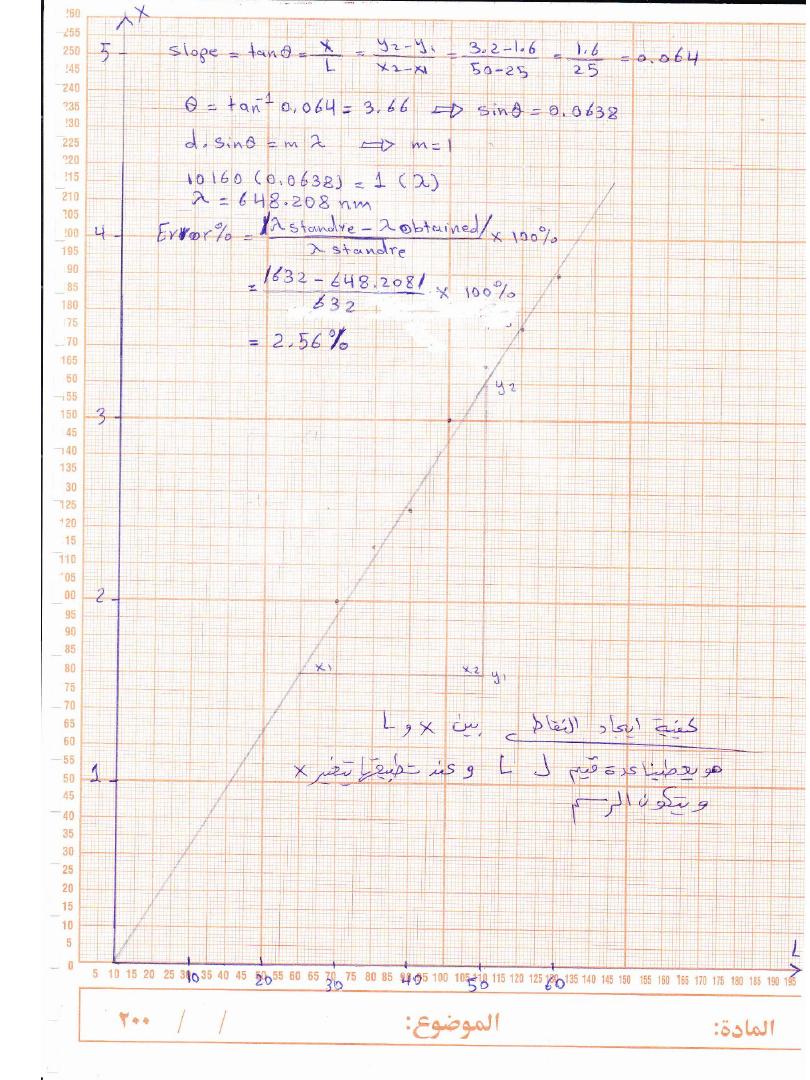 X
slope = tanθ = x/L = y2-y1/x2-x1 = 3.2-1.6/50-25 = 1.6/25 = 0.064
θ = tan⁻¹ 0.064 = 3.66 ⇒ sinθ = 0.0638
d. sinθ = m λ ⇒ m=1
10160 (0.0638) = 1 (λ)
λ = 648.208 nm
Error% = |λ standre - λ obtained|/λ standre × 100%
= |632 - 648.208|/632 × 100%
= 2.56%
5
4
3
2
1
y2
x1 x2 y1
كيفية ايجاد النقاط بين x و L
هو يعطينا عدة قيم ل L و عند تطبيقها يتغير x
ويتكون الرسم
L
260
255
250
245
240
235
230
225
220
215
210
205
200
95
90
85
180
75
70
165
60
55
150
45
40
135
30
125
120
15
110
05
00
95
90
85
80
75
70
65
60
55
50
45
40
35
30
25
20
15
10
5
0
5 10 15 20 25 30 35 40 45 50 55 60 65 70 75 80 85 90 95 100 105 110 115 120 125 130 135 140 145 150 155 160 165 170 175 180 185 190 195
10 20 30 40 50 60
المادة: الموضوع: / / ٢٠٠